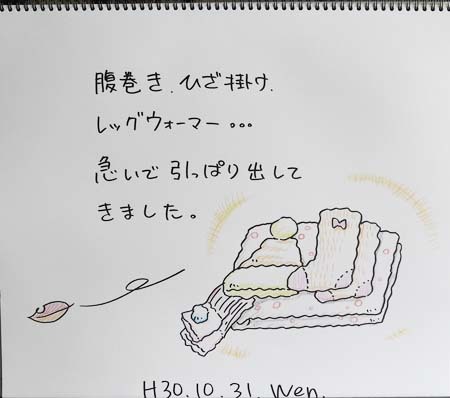 腹巻き、ひざ掛け、
レッグウォーマー・・・
急いで引っぱり出して
きました。
H30.10.31. Wen.